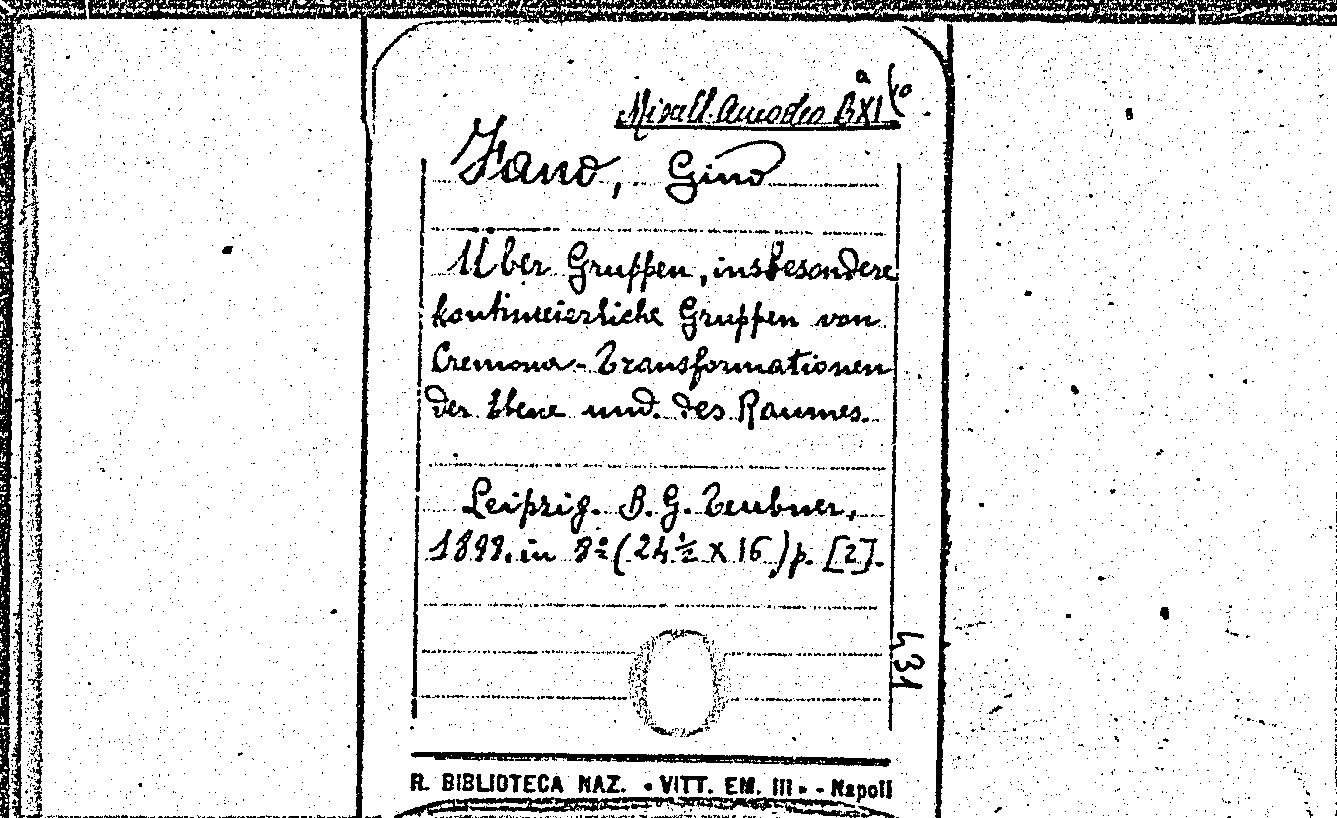 Miscell. Amodeo B XI a (10
Fano, Gino
Über Gruppen, insbesondere
kontinuierliche Gruppen von
Cremona-Transformationen
der Ebene und des Raumes.
Leipzig. B. G. Teubner,
1899. in 8º (24 ½ x 16) p. [2].
431
R. BIBLIOTECA NAZ. «VITT. EM. III» - Napoli